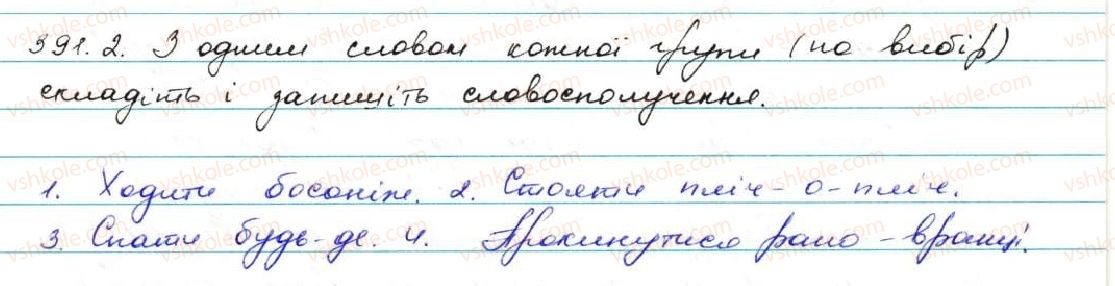 391.2. З одним словом кожної групи (на вибір)
складіть і запишіть словосполучення.
1. Ходити босоніж. 2. Стояти пліч-о-пліч.
3. Спати будь-де. 4. Прокинутися рано-вранці.